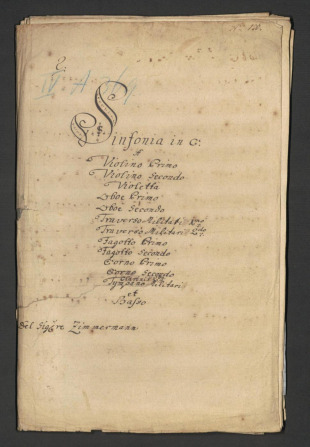 No. 13.
IV A 369
Sinfonia in G:
Violino Primo
Violino Secondo
Violetta
Oboe Primo
Oboe Secondo
Traverso Militaris 1mo
Traverso Militaris 2do
Fagotto Primo
Fagotto Secondo
Corno Primo
Corno Secondo
Tympano Militaris
et
Basso
Del Sigre Zimmermann